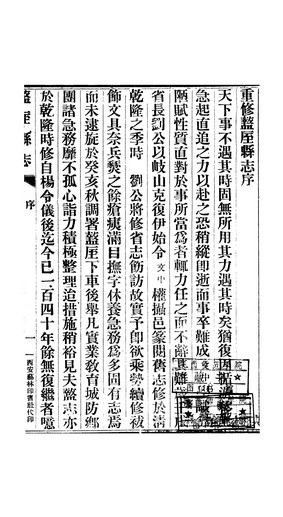 重修盩厔縣志序
天下事不遇其時固無所用其力遇其時矣猶復
急起直追之力以赴之恐稍縱即逝而事卒難成
陋賦性質直對於事所當爲者輒力任之而不辭
省長劉公以岐山克復伊始令文中權攝邑篆閱舊志修於清
乾隆之季時　劉公將修省志飭訪故實予欲乘勢續修祓
飾文具奈兵燹之餘瘡痍滿目撫字休養急務爲多固有志焉
而未逮旋於癸亥秋調署盩厔下車後舉凡實業敎育城防鄉
團諸急務靡不孤心詣力積極整理迨措施稍裕見夫盩志亦
於乾隆時修自楊令儀後迄今已一百四十年餘無復繼者噫
盩厔縣志
序
一
西安藝林印書社代印